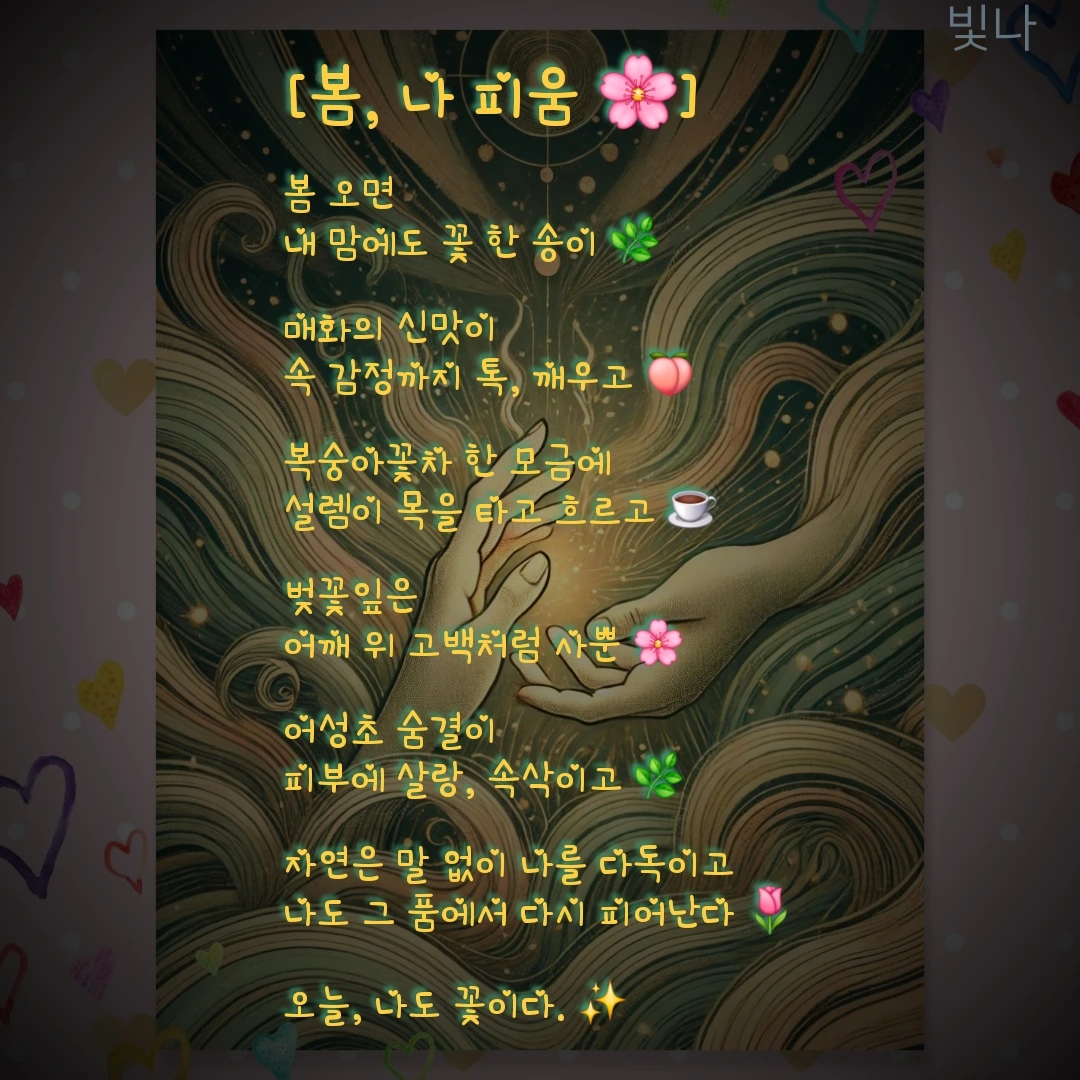 빛나
[봄, 나 피움 🌸]
봄 오면
내 맘에도 꽃 한 송이 🌿
매화의 신맛이
속 감정까지 톡, 깨우고 🍑
복숭아꽃차 한 모금에
설렘이 목을 타고 흐르고 ☕
벚꽃잎은
어깨 위 고백처럼 사뿐 🌸
어성초 숨결이
피부에 살랑, 속삭이고 🌿
자연은 말 없이 나를 다독이고
나도 그 품에서 다시 피어난다 🌷
오늘, 나도 꽃이다. ✨